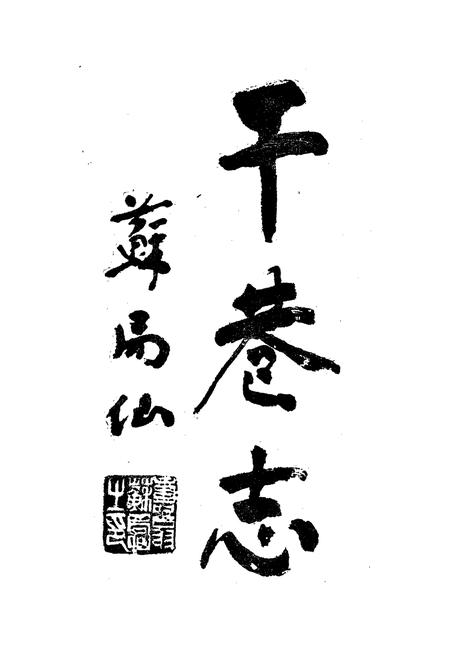 干巷志
蘇局仙